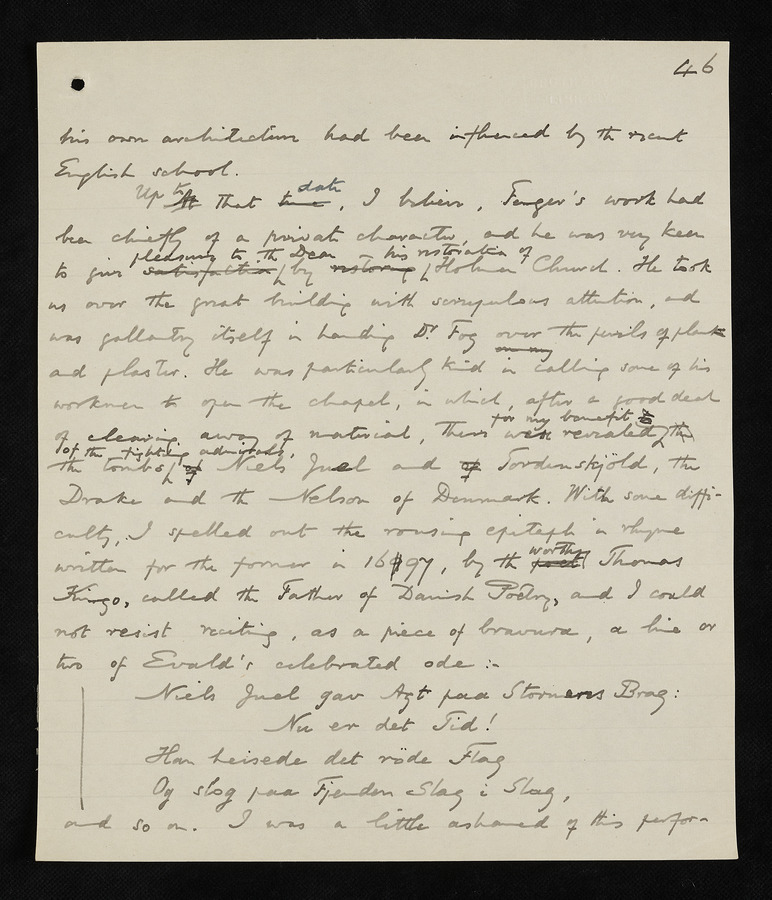 46
his own architecture had been influenced by the recent
English school.
Up to At that time date, I believe, Fenger's work had
been chiefly of a private character, and he was very keen
pleasing to the Dean his restoration of
to give satisfaction by restoring Holmen Church. He took
us over the great building with scrupulous attention, and
was gallantry itself in handing Dr. Fog over the perils of plank
and plaster. He was particularly kind in calling some of his
workmen to open the chapel, in which, after a good deal
for my benefit
of clearing away of material, there were revealed the
of the fighting admirals,
the tombs of Niels Juel and of Tordenskjöld, the
Drake and the Nelson of Denmark. With some diffi-
culty, I spelled out the rousing epitaph in rhyme
worthy
written for the former in 1697, by the poet Thomas
Kingo, called the Father of Danish Poetry, and I could
not resist reciting, as a piece of bravura, a line or
two of Evald's celebrated ode :-
Niels Juel gav Agt paa Stormens Brag:
Nu er det Tid!
Han heisede det röde Flag
Og slog paa Fjenden Slag i Slag,
and so on. I was a little ashamed of this perfor-